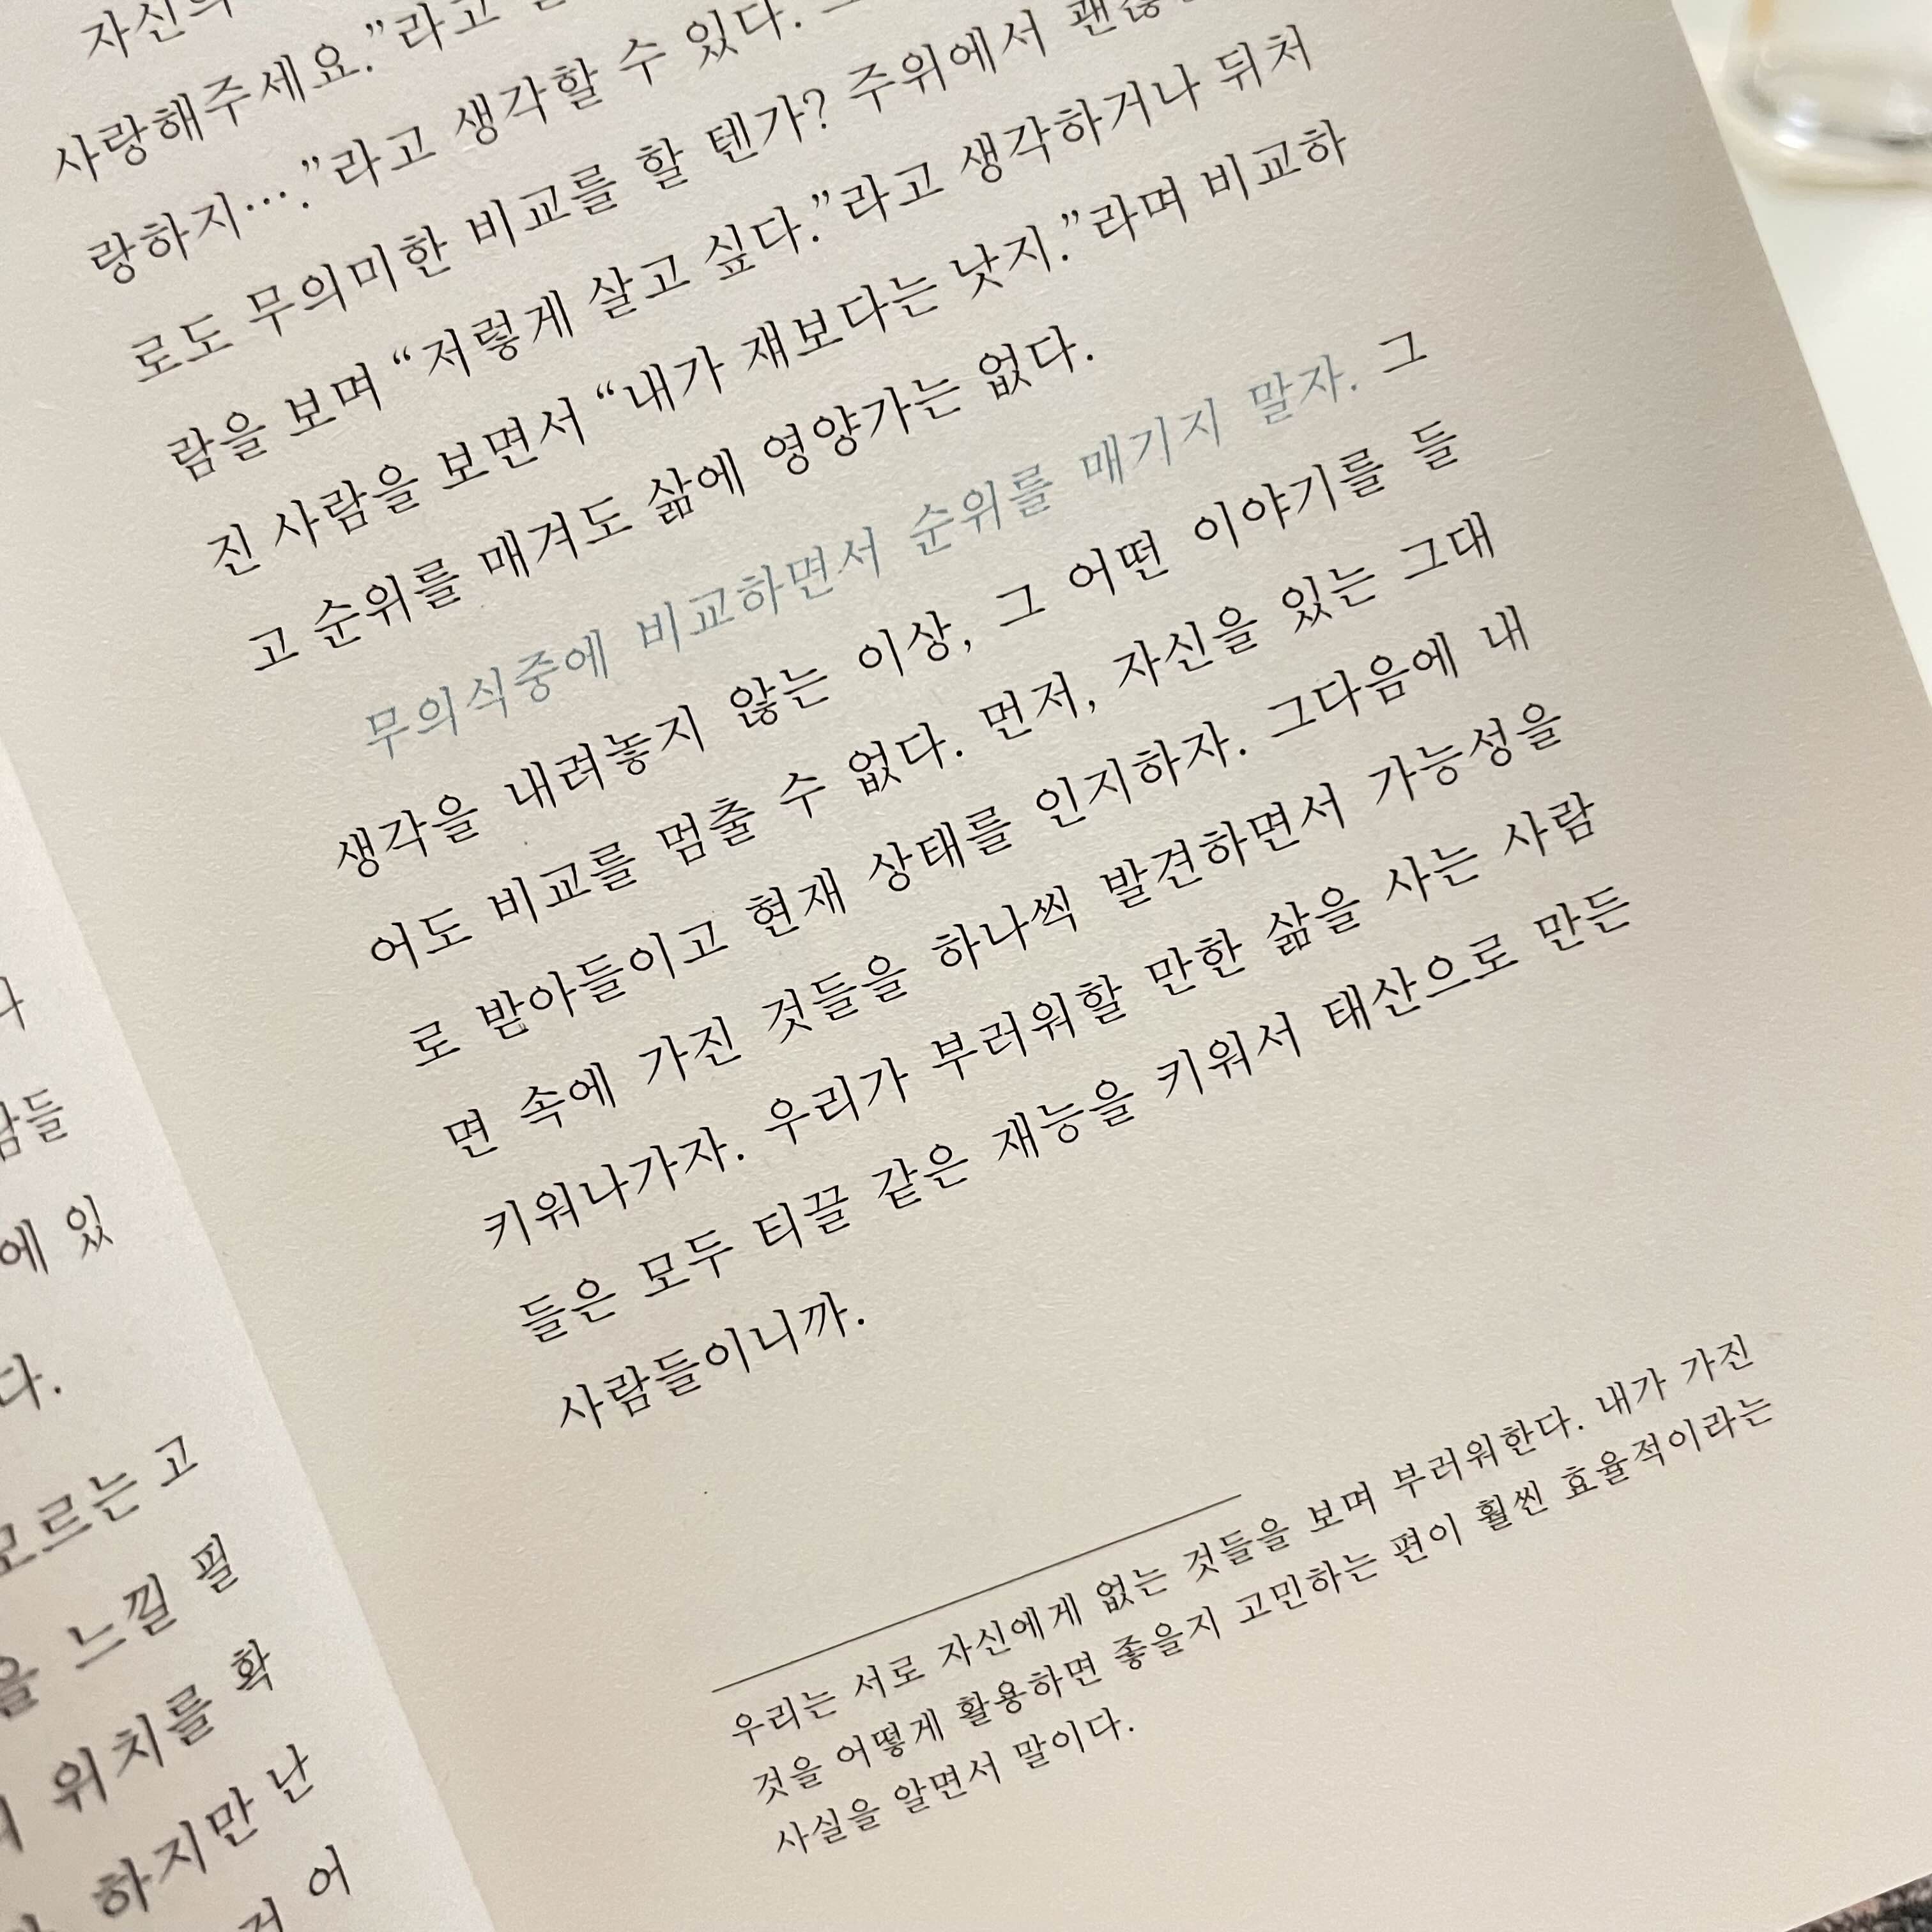 사랑해주세요.”라고
랑하지….”라고 생각할 수 있다.
로도 무의미한 비교를 할 텐가? 주위에서
람을 보며 “저렇게 살고 싶다.”라고 생각하거나 뒤처
진 사람을 보면서 “내가 쟤보다는 낫지.”라며 비교하
고 순위를 매겨도 삶에 영양가는 없다.
무의식중에 비교하면서 순위를 매기지 말자. 그
생각을 내려놓지 않는 이상, 그 어떤 이야기를 들
어도 비교를 멈출 수 없다. 먼저, 자신을 있는 그대
로 받아들이고 현재 상태를 인지하자. 그다음에 내
면 속에 가진 것들을 하나씩 발견하면서 가능성을
키워나가자. 우리가 부러워할 만한 삶을 사는 사람
들은 모두 티끌 같은 재능을 키워서 태산으로 만든
사람들이니까.
우리는 서로 자신에게 없는 것들을 보며 부러워한다. 내가 가진
것을 어떻게 활용하면 좋을지 고민하는 편이 훨씬 효율적이라는
사실을 알면서 말이다.
에 있
다.
모르는 고
을 느낄 필
위치를 확
하지만 난
어